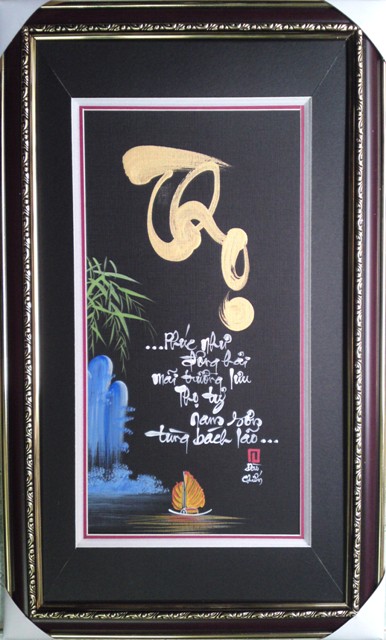 Thọ
...Phúc như
đông hải
mãi trường lưu
Thọ tỷ
nam sơn
tùng bách lão...